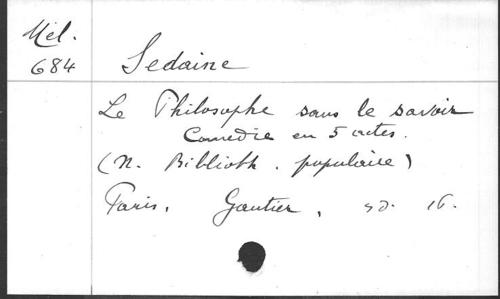 Mél.
684
Sedaine
Le Philosophe sans le savoir
Comédie en 5 actes.
(N. Biblioth. populaire)
Paris, Gautier, sd. 16.